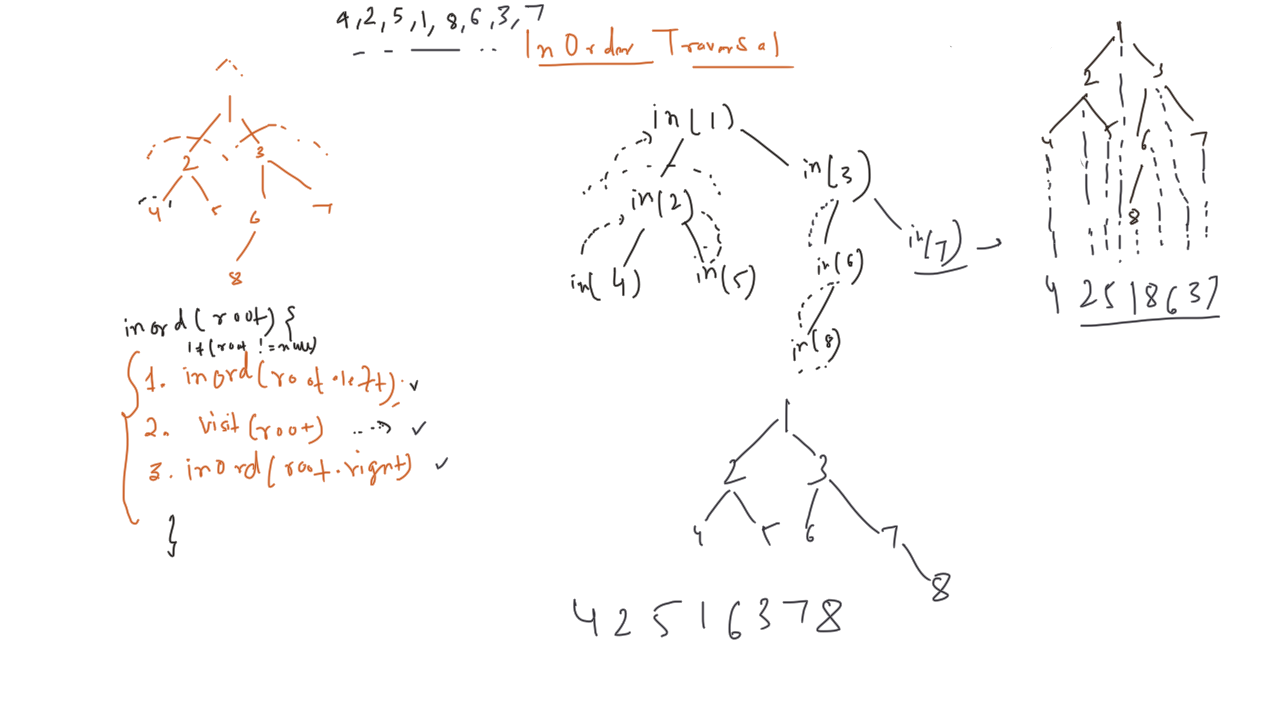 4,2,5,1,8,6,3,7
InOrder Traversal
1
2 3
4 5 6 7
8
inord(root){
if(root !=null)
1. inord(root.left);
2. visit(root)
3. inord(root.right)
}
in(1)
in(2) in(3)
in(4) in(5) in(6) in(7)
in(8)
1
2 3
4 5 6 7
8
4 2 5 1 6 3 7 8
1
2 3
4 5 6 7
8
4 2 5 1 8 6 3 7